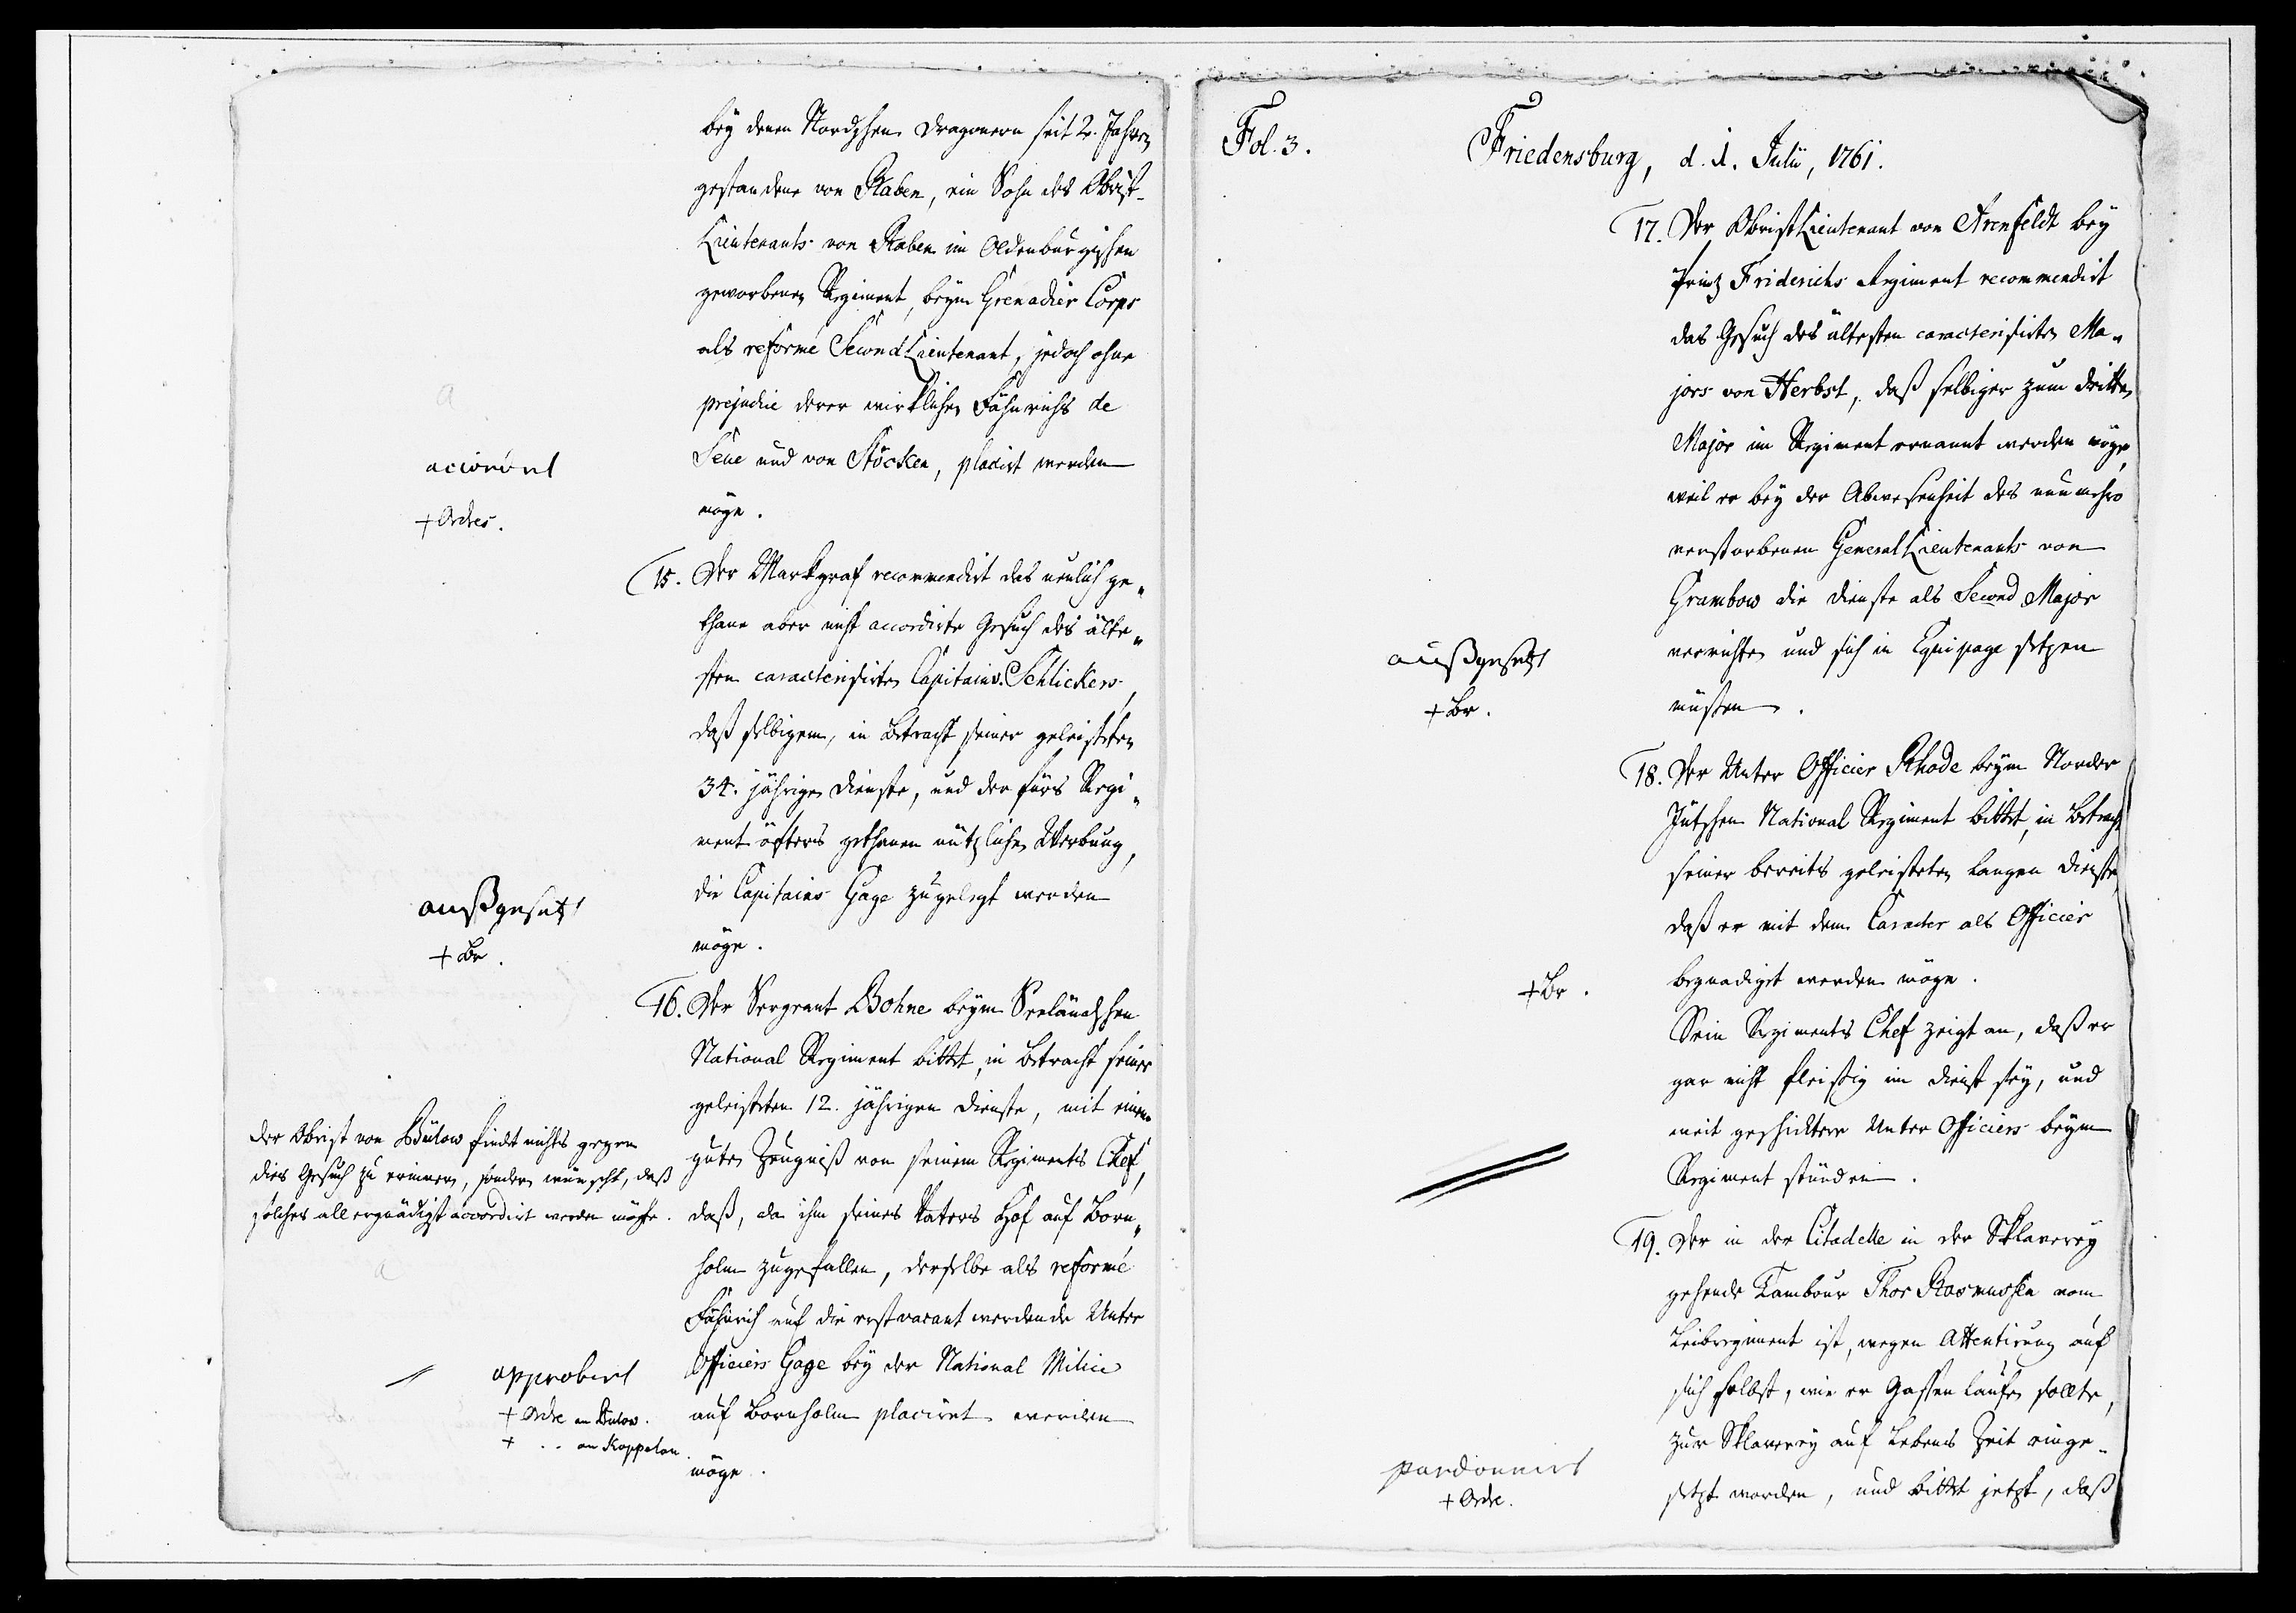 bey denen Nordschen Dragonern seit 2. Jahren
gestandene von Raben, ein Sohn des Obrist-
Lieutenants von Raben im Oldenburgischen
geworbenen Regiment, beym Grenadier Corps
als reformé SecondLieutenant, jedoch ohne
prejudice derer wirklichen Fähnrichs de
Seue und von Stöcken, placirt werden
möge.
accordirt
+ Ordres.
15. Der Markgraf recommendirt das neulich ge-
thane aber nicht accordirte Gesuch des älte-
sten caracterisirten Capitains Schlickers,
daß selbigem, in Betracht seiner geleisteten
34. jährigen Dienste, und der fürs Regi-
ment öfters gethanen nützlichen Werbung,
die Capitains Gage zugelegt werden
möge.
außgesetzt
+ Br.
16. Der Sergeant Bohne beym Seeländschen
National Regiment bittet, in Betracht seiner
geleisteten 12. jährigen Dienste, mit einem
guten Zeugniß von seinem Regiments Chef,
daß, da ihm seines Vaters Hof auf Born-
holm zugefallen, derselbe als reformé
Fähnrich auf die erst vacant werdende Unter
Officiers Gage bey der National Milice
auf Bornholm placiret werden
möge.
Der Obrist von Bülow findet nichts gegen
dies Gesuch zu erinnern, sondern wünscht, daß
solches allergnädigst accordirt werden möchte.
approbirt
+ Ordre an Bülow.
+ .. an Koppelau.
Fol. 3.
Friedensburg, d. 1. Julii, 1761.
17. Der ObristLieutenant von Arenfeldt bey
Prinz Friderichs Regiment recommendirt
das Gesuch des ältesten caracterisirten Ma-
jors von Herbst, daß selbiger zum dritten
Major im Regiment ernannt werden möge,
weil er bey der Abwesenheit des nunmehro
verstorbenen GeneralLieutenants von
Grambow die Dienste als Second Major
verrichten und sich in Equipage setzen
müßen.
außgesetzt
+ Br.
18. Der Unter Officier Rhode beym Norder
Jütschen National Regiment bittet, in Betracht
seiner bereits geleisteten langen Dienste
daß er mit dem Caracter als Officier
begnadiget werden möge.
+ Br.
Sein Regiments Chef zeigt an, daß er
gar nicht fleißig im Dienst sey, und
weit geschicktere Unter Officiers beym
Regiment stünden.
19. Der in der Citadelle in der Sklaverey
gehende Tambour Thor Rasmussen vom
Leibregiment ist, wegen Attentirung auf
sich selbst, wie er Gassen laufen sollte,
zur Sklaverey auf Lebens Zeit einge-
setzt worden, und bittet jetzt, daß
pardonnirt
+ Ordre.